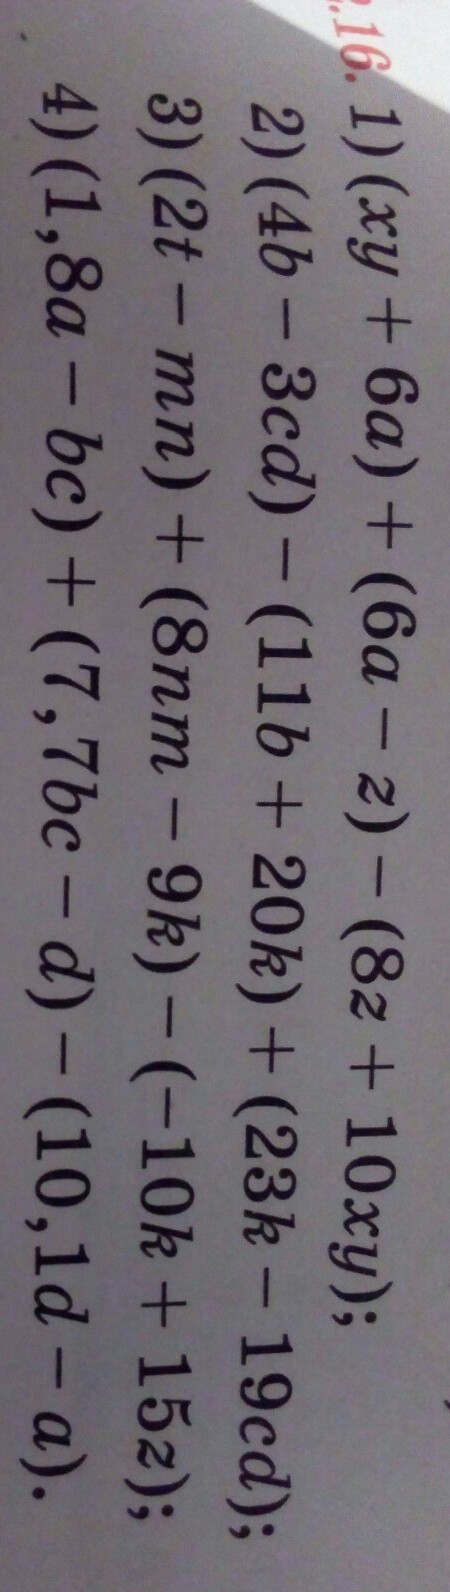 .16. 1) (xy + 6a) + (6a − z) − (8z + 10xy);
2) (4b − 3cd) − (11b + 20k) + (23k − 19cd);
3) (2t − mn) + (8nm − 9k) − (−10k + 15z);
4) (1,8a − bc) + (7,7bc − d) − (10,1d − a).